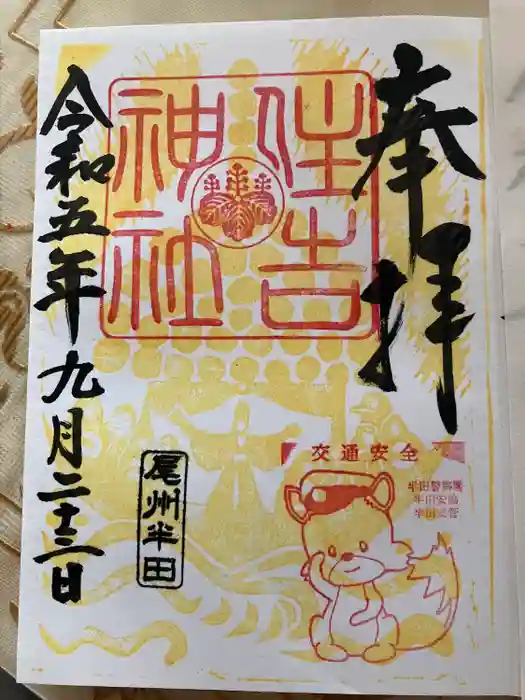 奉拝
住吉
神社
交通安全
半田警察署
半田安協
令和五年九月二十三日
尾州半田